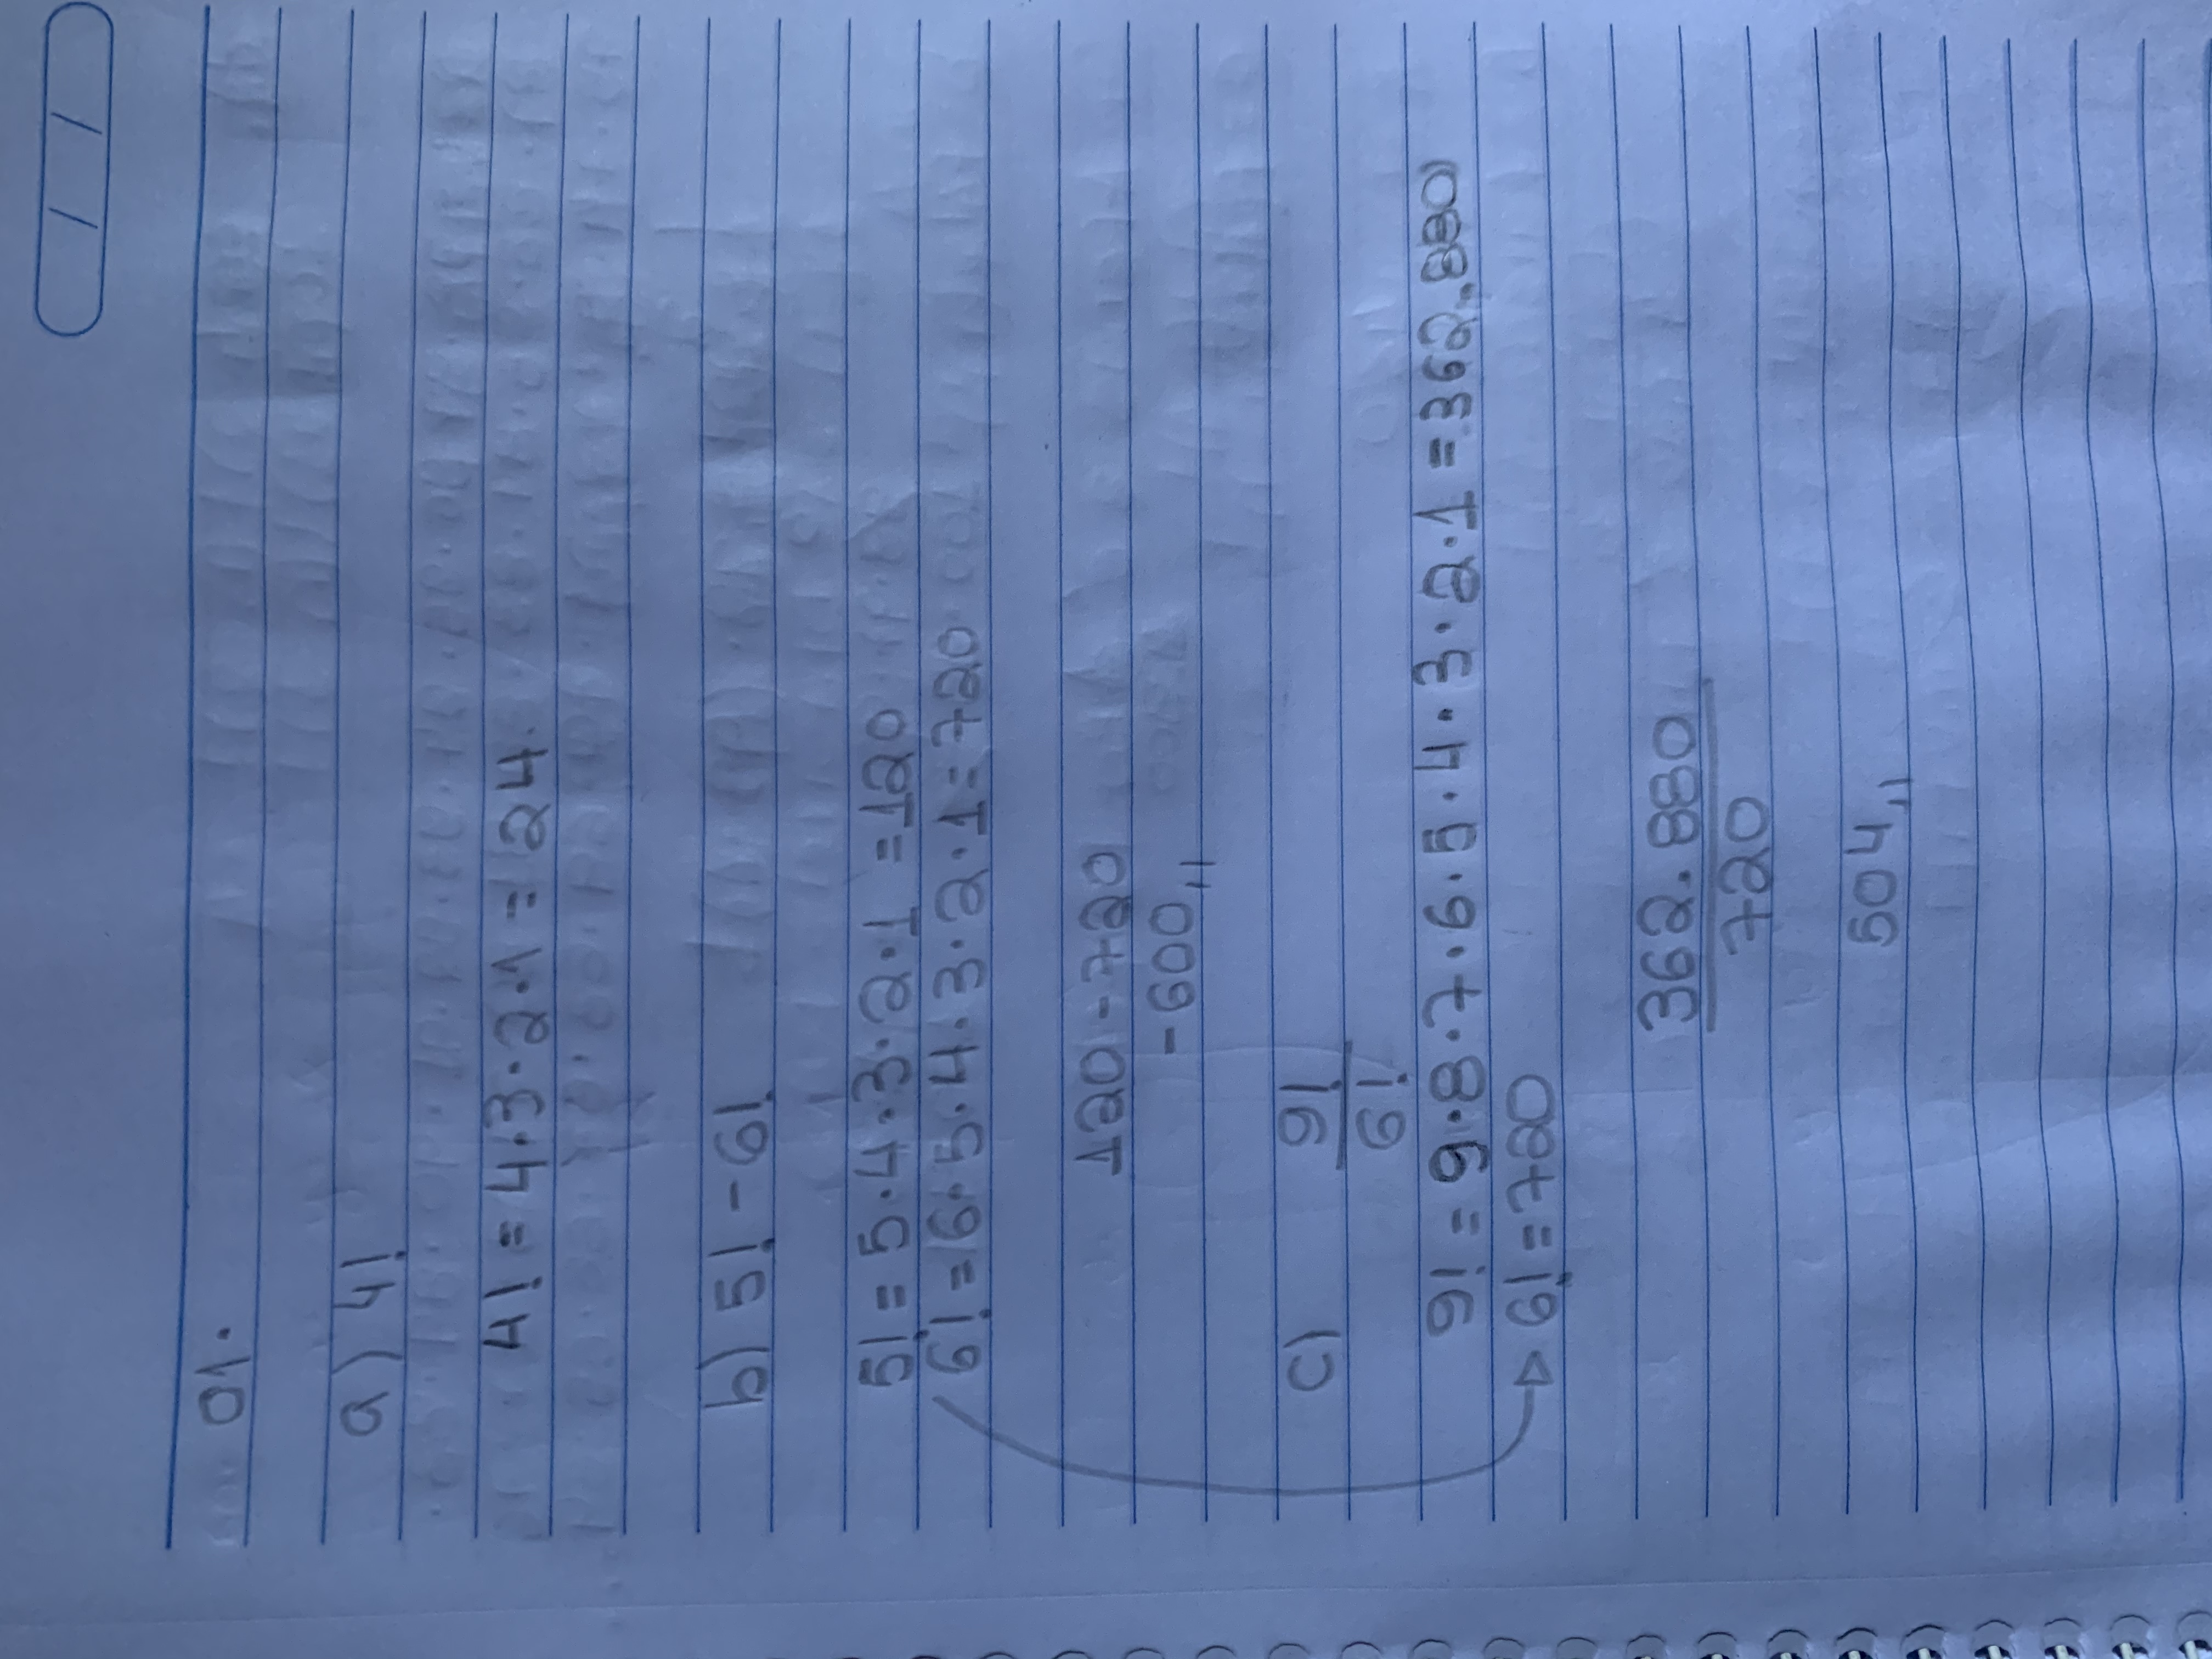 / /
01.
a) 4!
4! = 4.3.2.1 = 24.
b) 5! - 6!
5! = 5.4.3.2.1 = 120
6! = 6.5.4.3.2.1 = 720
120 - 720
- 600,,
c) 9!
6!
9! = 9.8.7.6.5.4.3.2.1 = 362.880
6! = 720
362.880
720
504,,